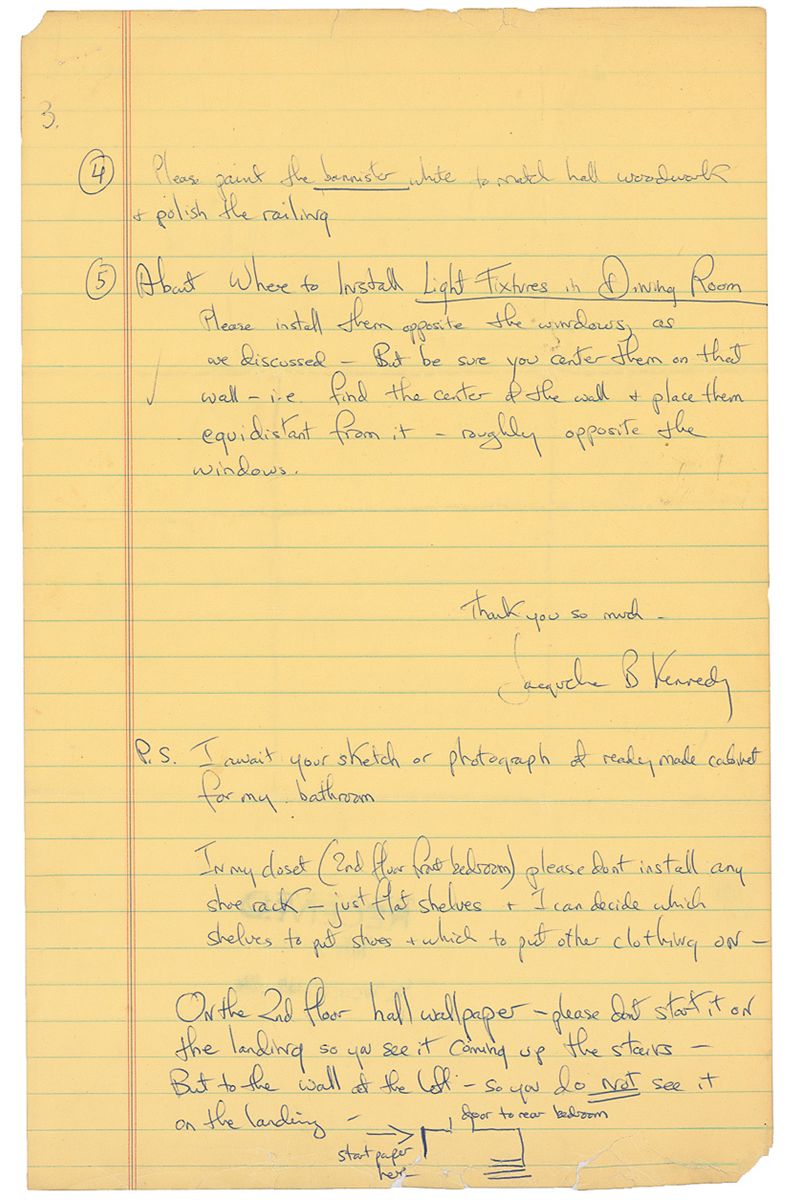 3.
④ Please paint the bannister white to match hall woodwork
+ polish the railing
⑤ About Where to Install Light Fixtures in Dining Room
Please install them opposite the windows, as
we discussed – But be sure you center them on that
wall – i.e find the center of the wall + place them
equidistant from it – roughly opposite the
windows.
Thank you so much –
Jacqueline B Kennedy
P.S. I await your sketch or photograph of ready made cabinet
for my bathroom
In my closet (2nd floor front bedroom) please dont install any
shoe rack – just flat shelves + I can decide which
shelves to put shoes + which to put other clothing on –
On the 2nd floor hall wallpaper – please dont start it on
the landing so you see it coming up the stairs –
But to the wall at the left – so you do not see it
on the landing –
door to rear bedroom
start paper
here –